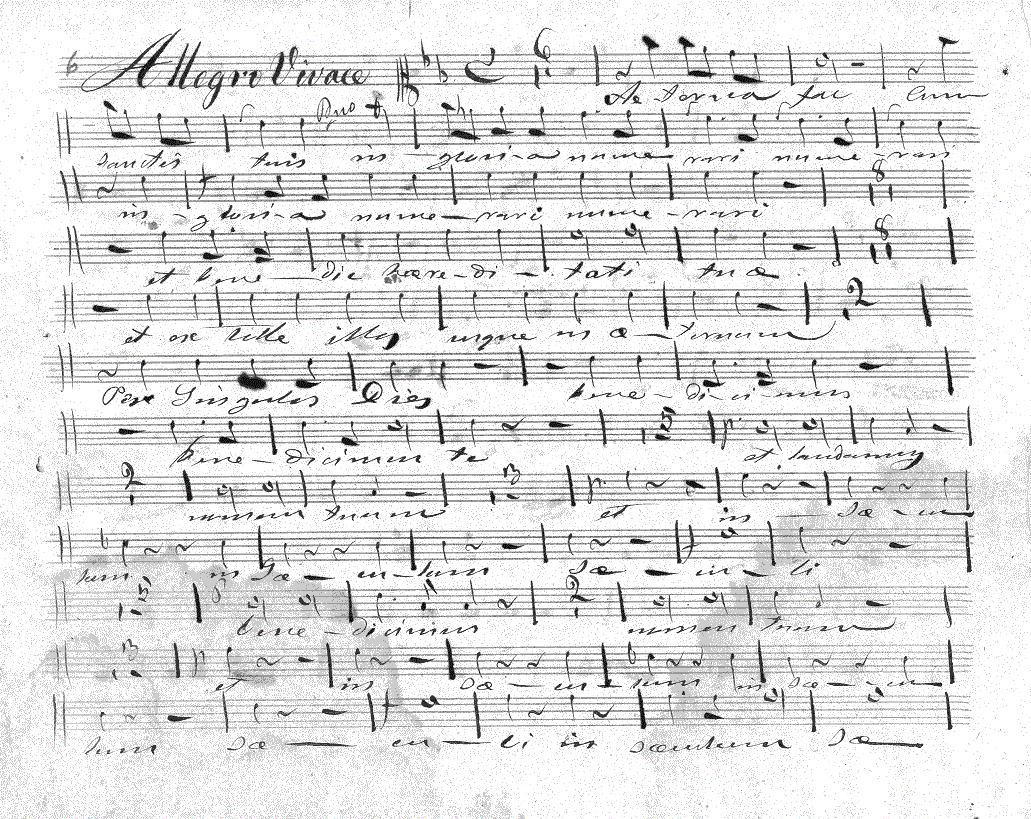 6 Allegro Vivace 6
Ae terna fac cum
Duo
sanctis tuis in - glori - a nume - rari nume - rari
in - glori - a nume - rari nume - rari
8
et bene - dic hære - di - tati tuæ
8
et ex tolle illos usque in æ - ternum
2
Per Singulos Dies bene - di - ci - mus
bene - dicimus te et laudamus
5
2
nomen tuum et in sæ - cu
3
lum in sæ - cu - lum sæ - cu - li
5 2
bene - dicimus nomen tuum
3
et in sæ - cu - lum in sæ - cu
lum sæ - cu - li in sæculum sæ